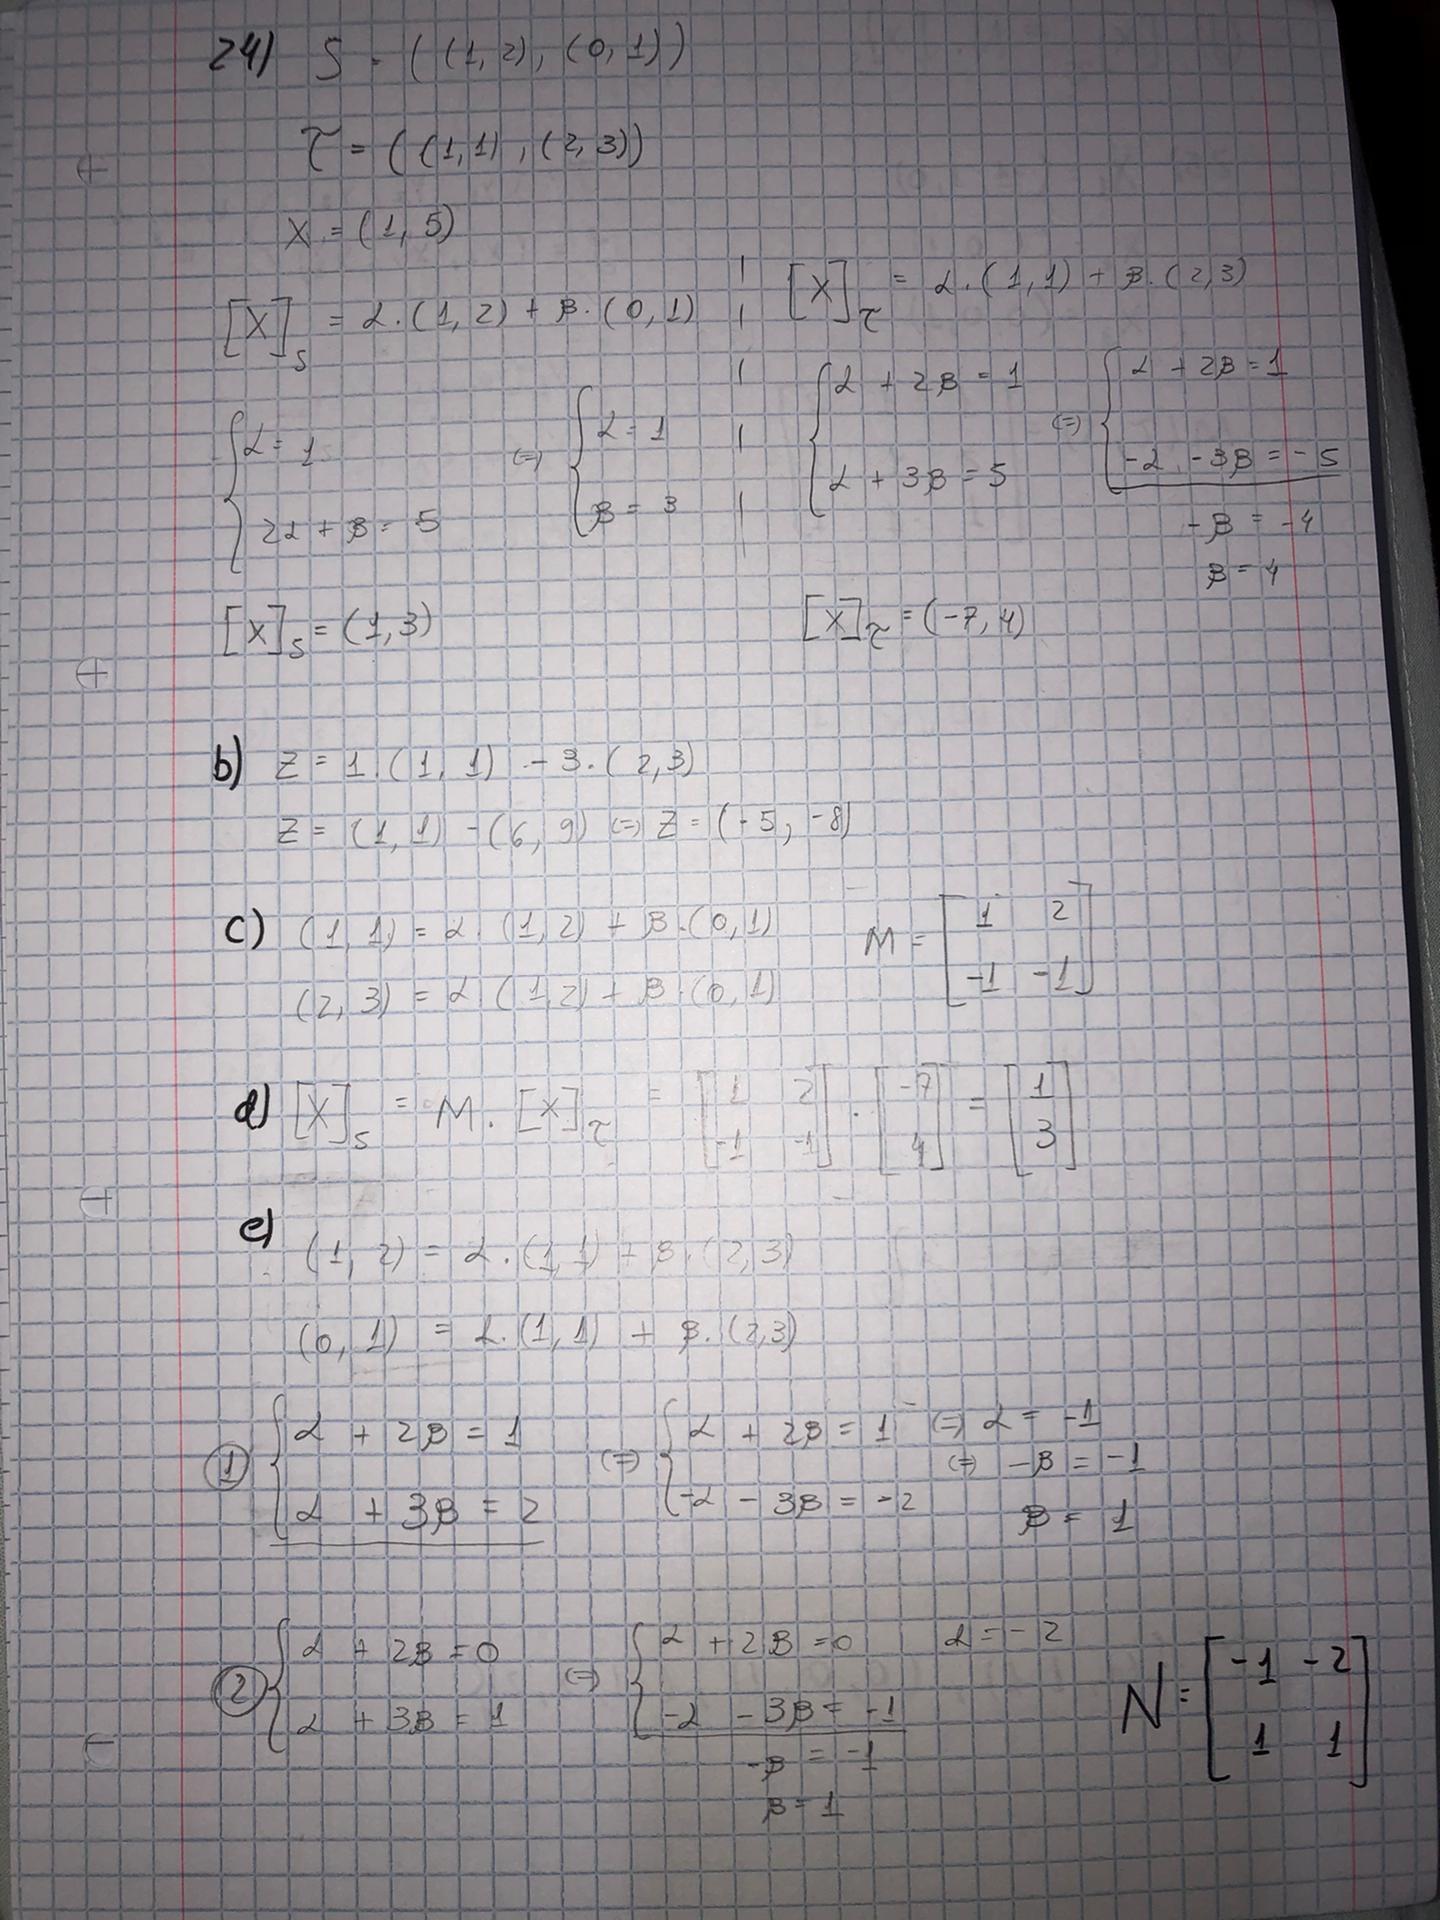 24) S = ((1, 2), (0, 1))
τ = ((1, 1), (2, 3))
X = (1, 5)
[X]s = α.(1, 2) + β.(0, 1)
{α = 1
2α + β = 5
(=) {α = 1
β = 3
[X]s = (1, 3)
[X]τ = α.(1, 1) + β.(2, 3)
{α + 2β = 1
α + 3β = 5
(=) {α + 2β = 1
-α - 3β = -5
-β = -4
β = 4
[X]τ = (-7, 4)
b) Z = 1.(1, 1) - 3.(2, 3)
Z = (1, 1) - (6, 9) (=) Z = (-5, -8)
c) (1, 1) = α.(1, 2) + β.(0, 1)
(2, 3) = α.(1, 2) + β.(0, 1)
M = [1 2
-1 -1]
d) [X]s = M.[X]τ = [1 2 -1 -1].[-7 4] = [1 3]
e) (1, 2) = α.(1, 1) + β.(2, 3)
(0, 1) = α.(1, 1) + β.(2, 3)
① {α + 2β = 1
α + 3β = 2
(=) {α + 2β = 1 (=) α = -1
-α - 3β = -2
(=) -β = -1
β = 1
② {α + 2β = 0
α + 3β = 1
(=) {α + 2β = 0 α = -2
-α - 3β = -1
-β = -1
β = 1
N = [-1 -2
1 1]